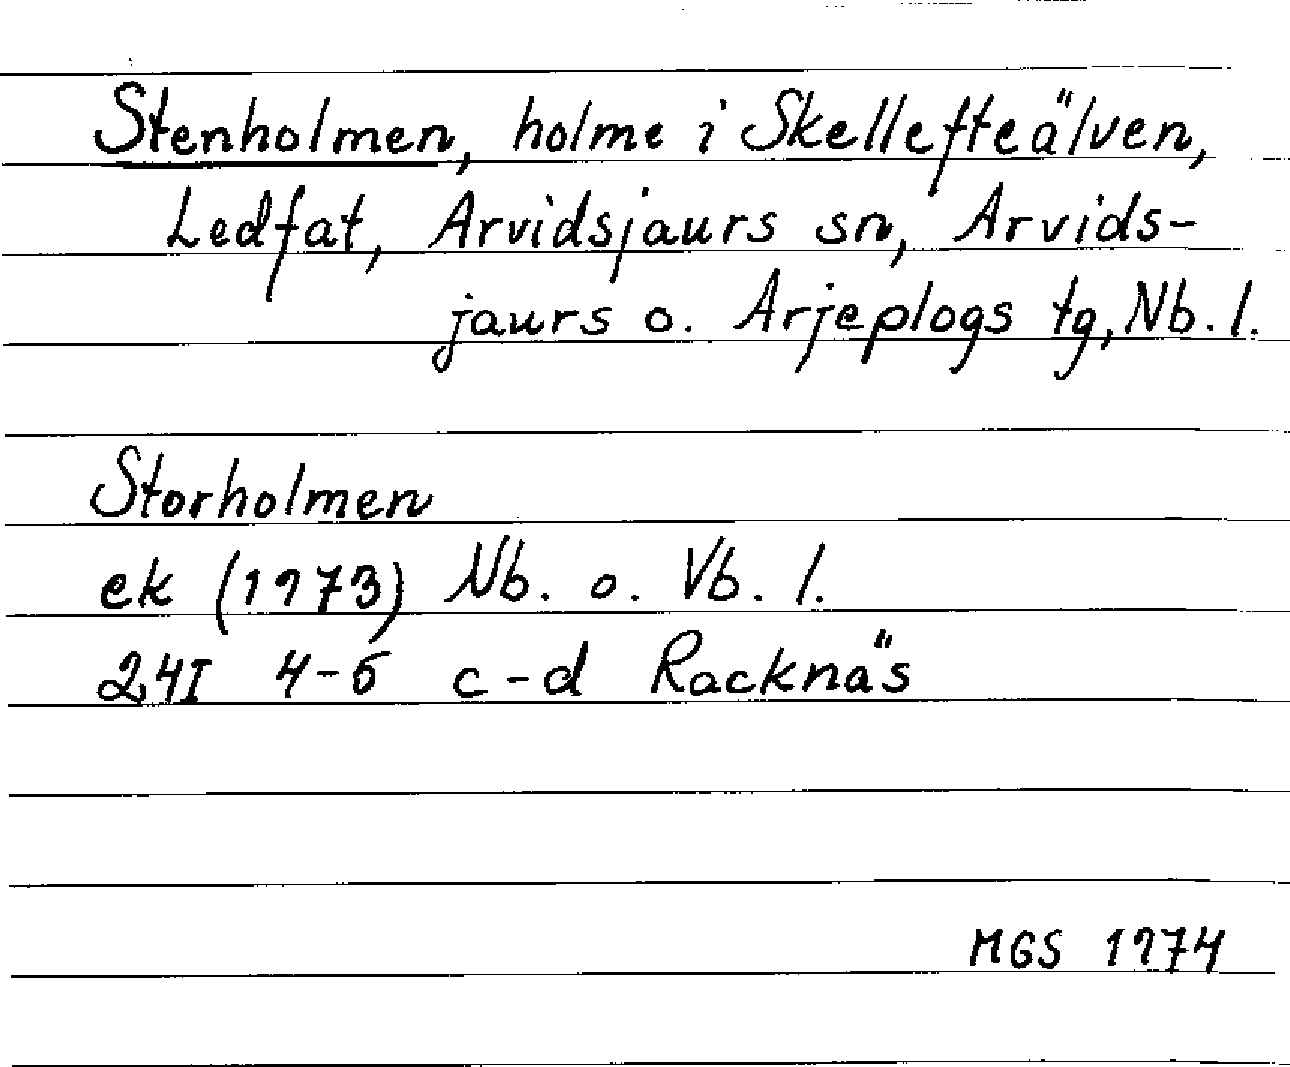 Stenholmen, holme i Skellefteälven,
Ledfat, Arvidsjaurs sn, Arvids-
jaurs o. Arjeplogs tg, Nb. l.
Storholmen
ek (1973) Nb. o. Vb. l.
24I 4-5 c-d Racknäs
MGS 1974